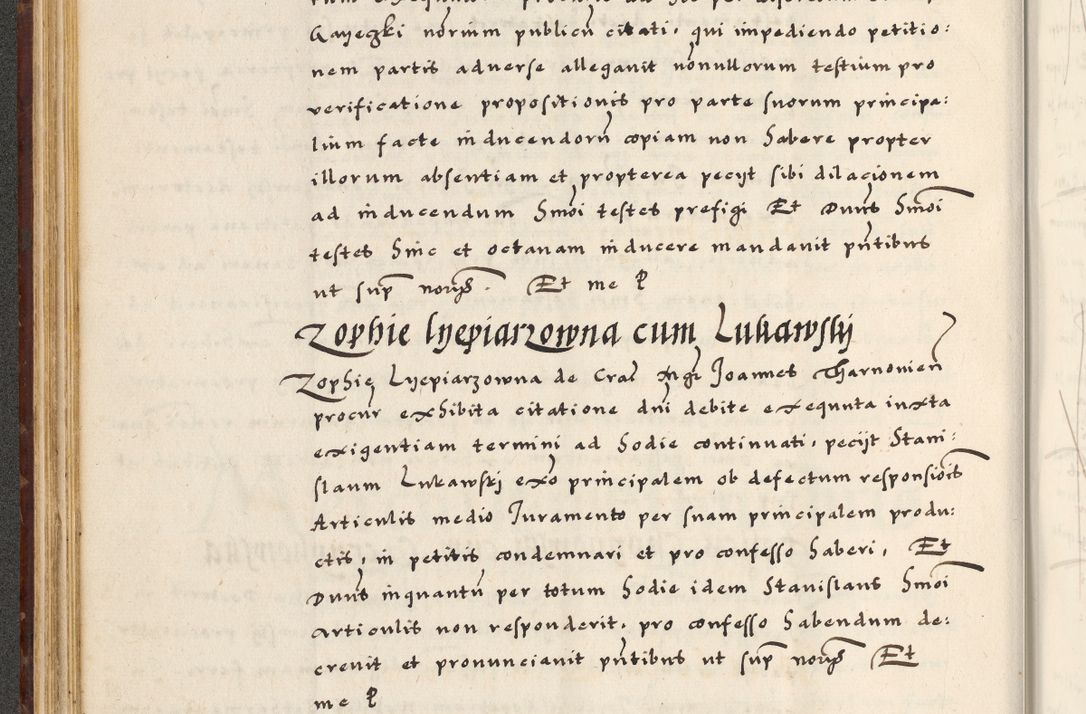 Gayeczki norium publicū citati, qui impediendo petitio:
nem partis adverse allegauit nōnullorum testium pro
verificatione propositionis pro parte suorum principa:
lium facte inducendorū copiam non habere propter
illorum absentiam et propterea pecijt sibi dilacionem
ad inducendum hmōi testes prefigi Et Dnūs hmōi
testes hinc et octauam inducere mandauit pn̄tibus
ut sup̄ nor. Et me P
Zophie lyepiarzowna cum Lukawskÿ
Zophie Lyepiarzowna de Crac̄ Mgr̄ Joannes Tharnouien̄
procur̄ exhibita citatione dn̄i debite exequuta iuxta
exigentiam termini ad hodie continuati, pecijt Stani:
slaum Lukawskj exo principalem ob defectum responsiōis
Articulis medio Juramento per suam principalem produ:
ctis, in petitis condemnari et pro confesso haberi, Et
Dnūs inquantū per totum hodie idem Stanislaus hmōi
articulis non responderit, pro confesso habendum de:
creuit et pronunciauit pn̄tibus ut sup̄ nor Et
me P